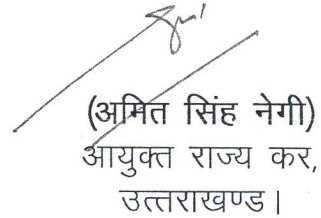 (अमित सिंह नेगी)
आयुक्त राज्य कर,
उत्तराखण्ड।